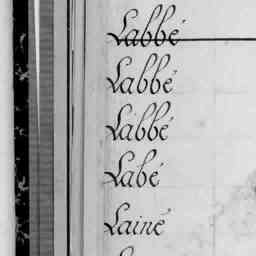 Labbé
Labbé
Labbé
Labé
Lainé